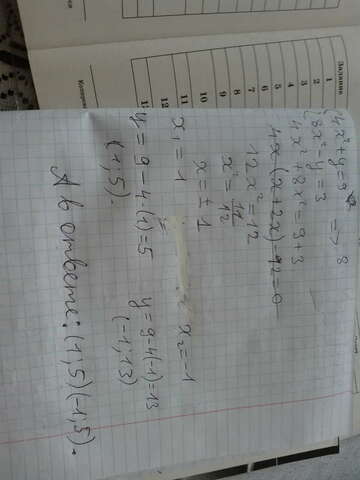 Задания 1 2 3 4 5 6 7 8 9 10 11 12
{4x²+y=9
{8x²-y=3 =>
4x²+8x²=9+3
4x(x+2x)-12=0
12x²=12
x²=12/12
x=±1
x₁=1 x₂=-1
y=9-4(1)=5 y=9-4(-1)=13
(1;5). (-1;13)
А в ответе: (1;5)(-1;5).